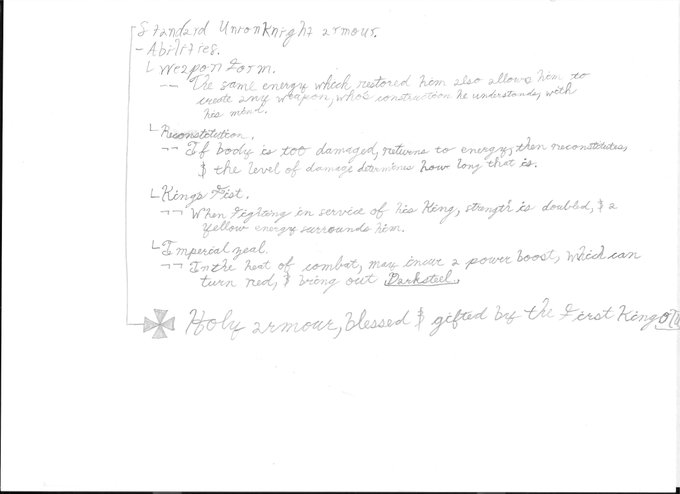 Standard Union Knight armour.
- Abilities.
Weapon Form.
-- The same energy which restored him also allows him to
create any weapon, who's construction he understands, with
his mind.
Reconstitution.
-- If body is too damaged, returns to energy, then reconstitutes,
& the level of damage determines how long that is.
Kings Fist.
-- When fighting in service of his King, strength is doubled, & a
yellow energy surrounds him.
Imperial zeal.
-- In the heat of combat, may incur a power boost, which can
turn red, & bring out Darksteel.
Holy armour, blessed & gifted by the First King